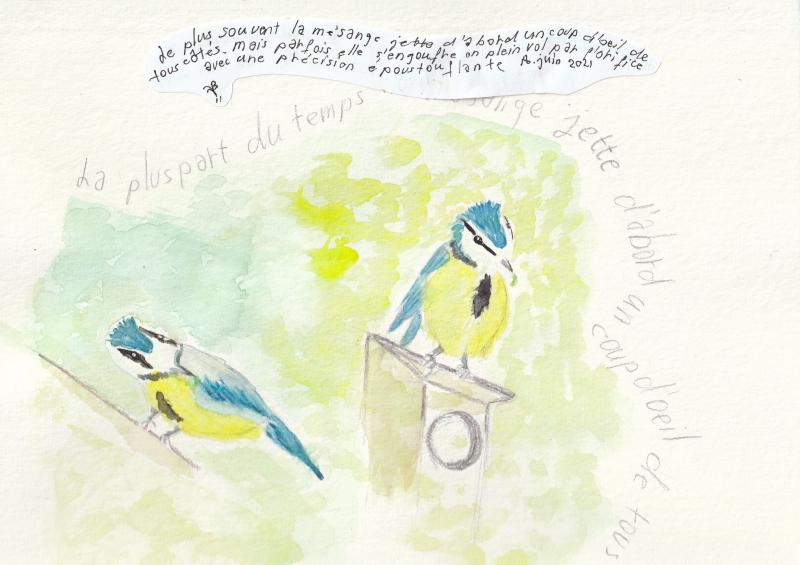 Le plus souvent la mésange jette d'abord un coup d'oeil de
tous côtés mais parfois elle s'engouffre en plein vol par l'orifice
avec une précision époustouflante A. juin 2021
La pluspart du temps mésange jette d'abord un coup d'oeil de tous